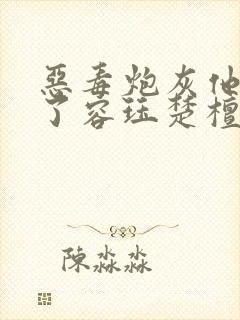 惡毒炮灰他
了容珏楚檀
陳淼淼